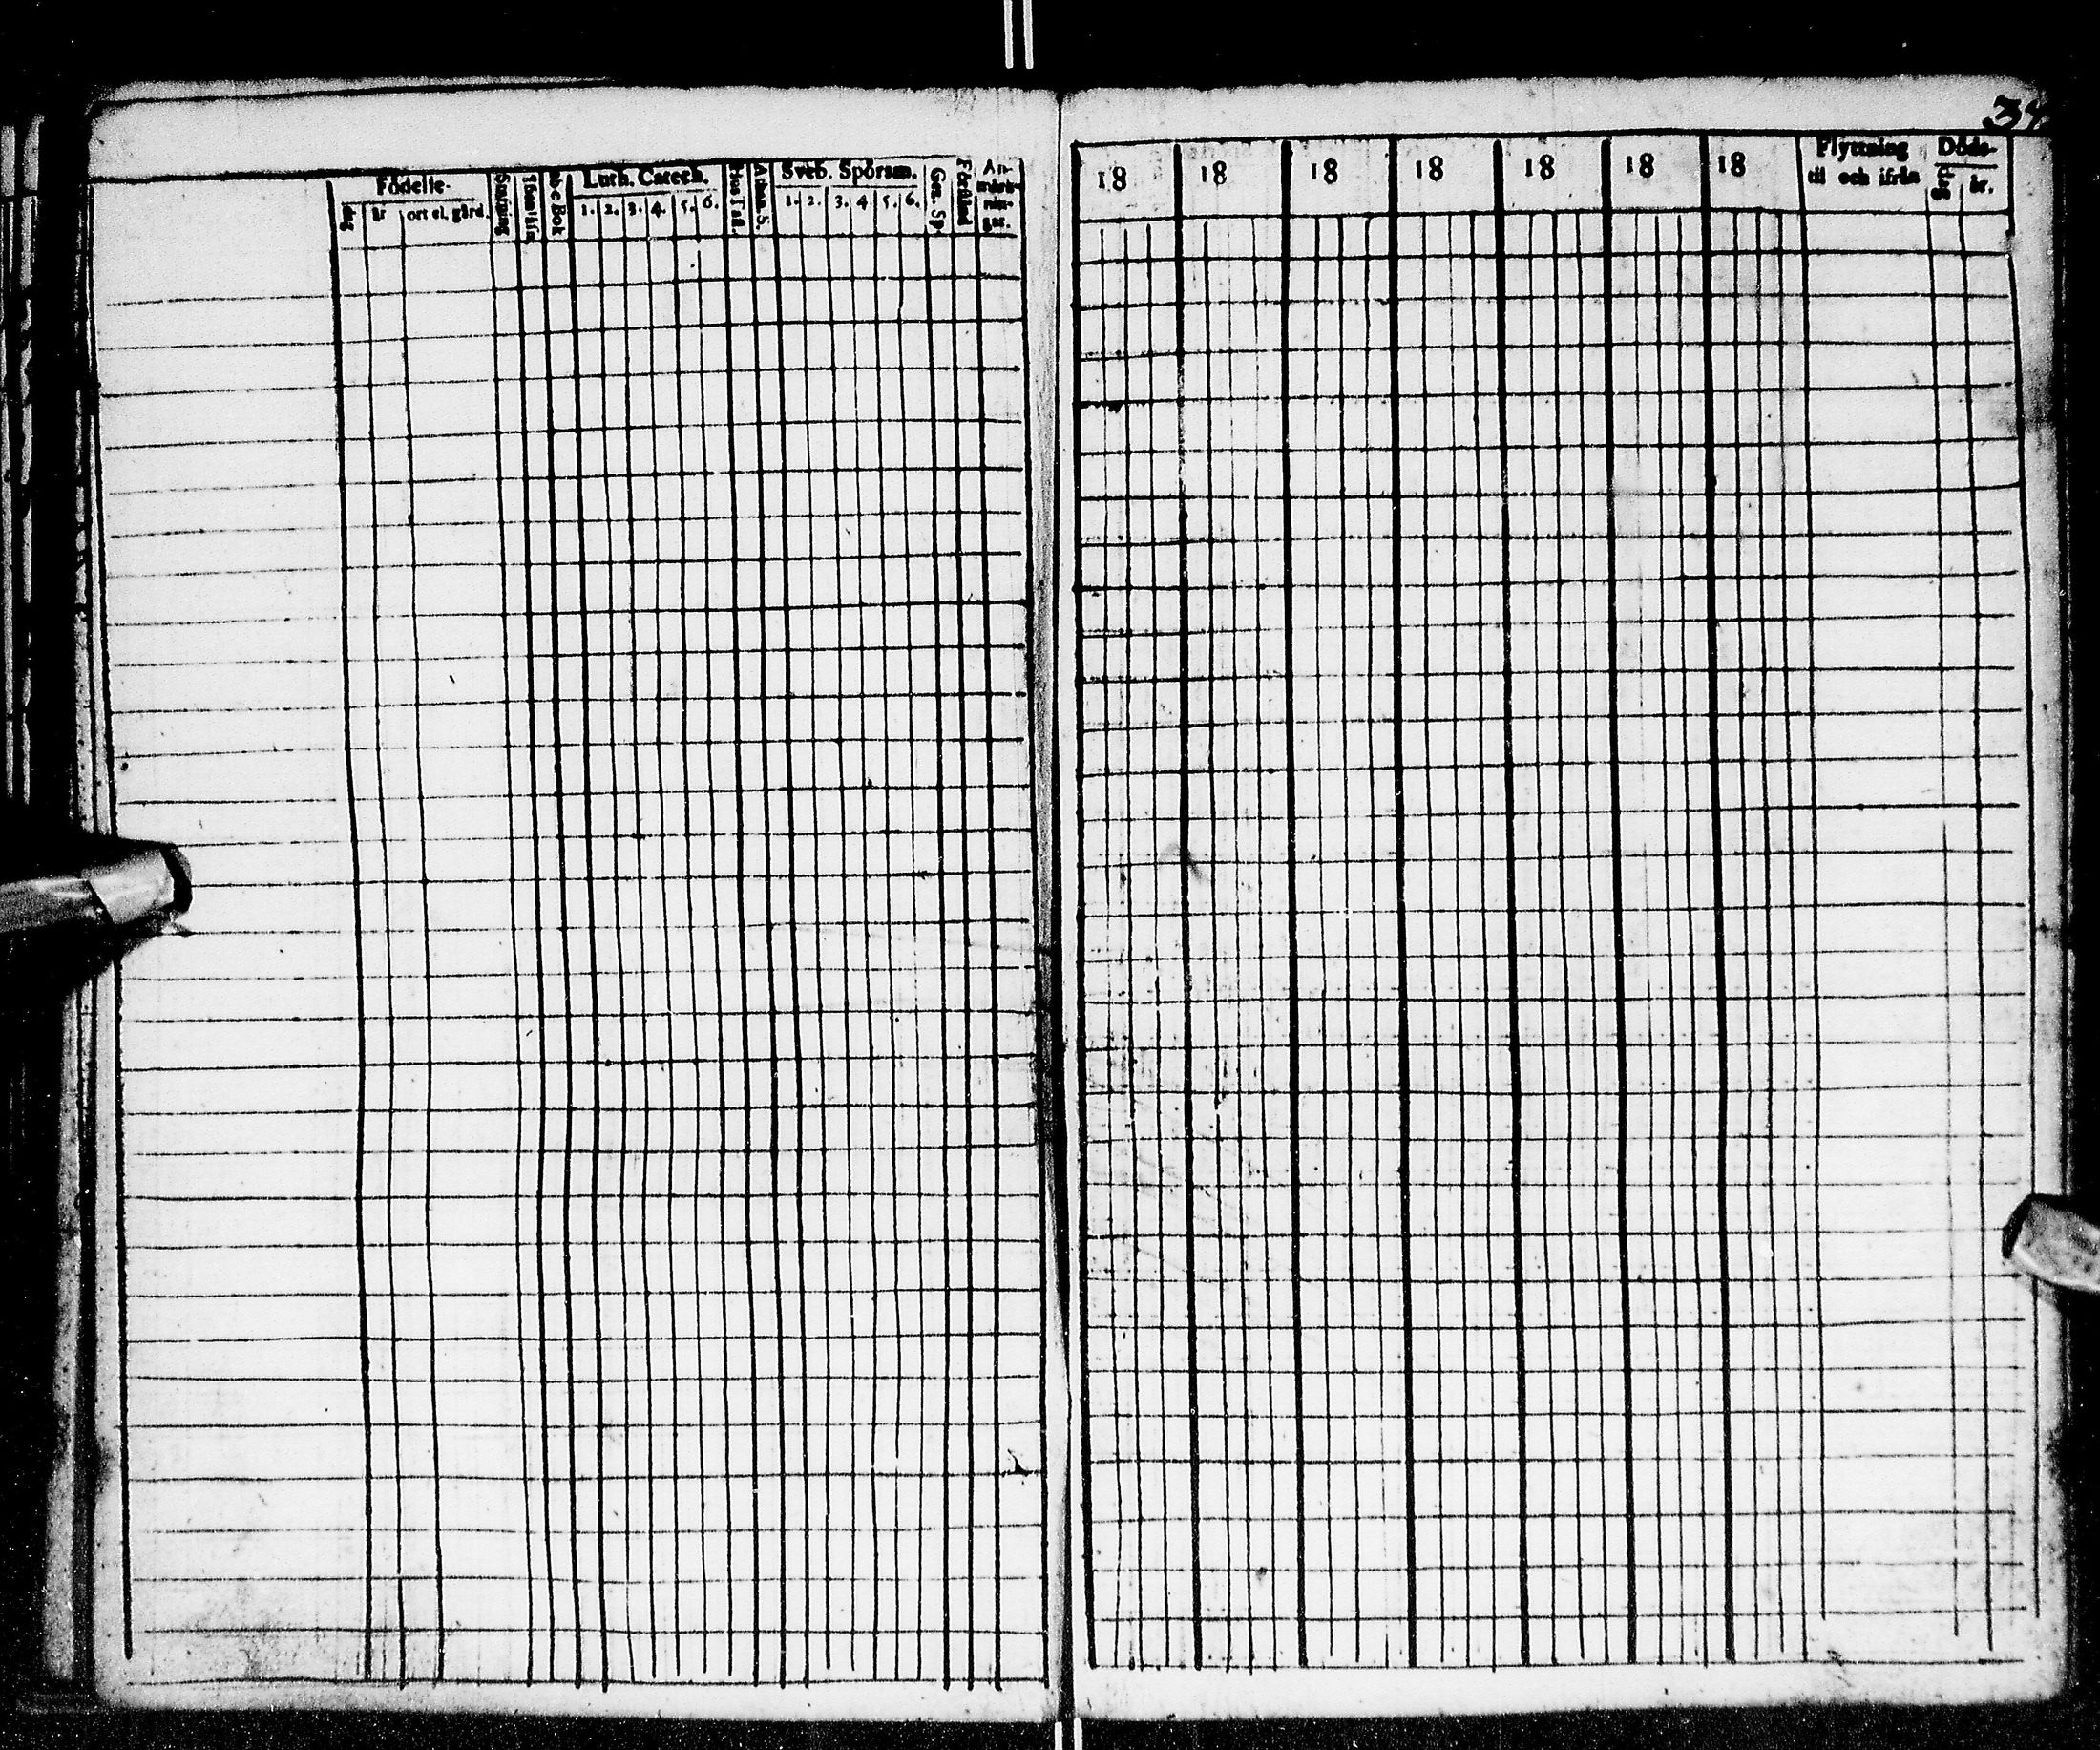 34.
Födelse-
dag
år
ort el. gård.
Stafning
Innanläsn.
Abc Bok
Luth. Catech.
1. 2. 3. 4. 5. 6.
Hus Tafl.
Athan. S.
Sveb. Spörsm.
1. 2. 3. 4. 5. 6.
Gen. Sp.
Förstånd
An-
märk-
nin-
gar.
18 18 18 18 18 18 18
Flyttning
til och ifrån
Döds-
dag
år.